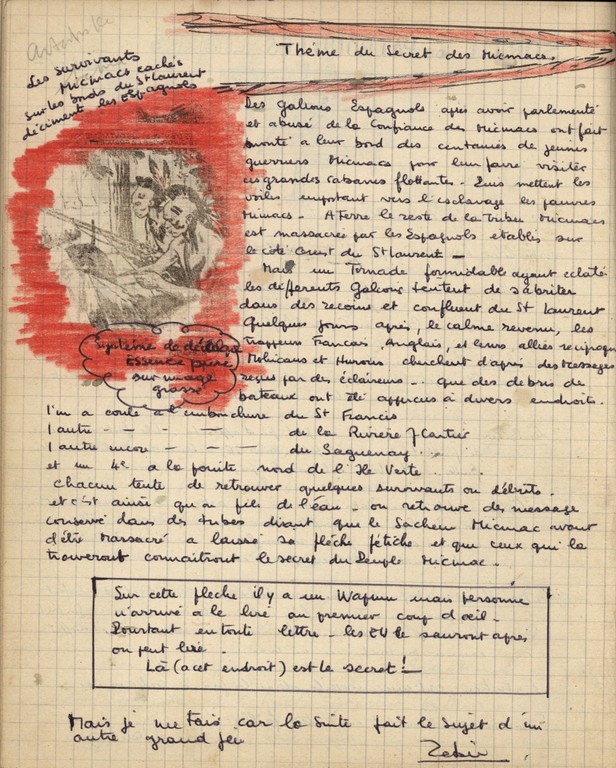 Thème du Secret des Micmacs.
Les survivants
Micmacs cachés
sur les bords du St Laurent
déciment les Espagnols
Des Galions Espagnols après avoir parlementé
et abusé de la Confiance des Micmacs ont fait
monté a leur bord des centaines de jeunes
guerriers Micmacs pour leur faire visiter
ces grandes cabanes flottantes - Puis mettent les
voiles emportant vers l'esclavage les pauvres
Micmacs - A Terre le reste de la tribu Micmacs
est massacrée par les Espagnols etablis sur
le coté Ouest du St Laurent -
Mais un Tornade formidable ayant eclaté
les differents Galions tentent de s'abriter
dans des recoins et confluent du St Laurent
Quelques jours après, le calme revenu, les
trappeurs Francais, Anglais, et leurs alliés
Mohicans et Hurons cherchent d'après des Messages
reçus par des éclaireurs - que des debris de
bateaux ont été apperçus à divers endroits.
Système de décalque
Essence pure
sur image
grasse
l'un a coulé a l'embouchure du St Francis
l'autre - - - - de la Rivière J Cartier
l'autre encore - - - du Saguenay
et un 4e a la pointe nord de l'Ile Verte
chacun tente de retrouver quelques survivants ou débris.
et c'est ainsi qu'au fil de l'eau - on retrouve des message
conservé dans des tubes disant que le Sachem Micmac avant
d'être massacré a laissé sa flêche fétiche et que ceux qui la
trouveront connaitront le secret du Peuple Micmac -
Sur cette fleche il y a un Wapum mais personne
n'arrive a le lire au premier coup d'oeil -
Pourtant en toute lettre - les le sauront après
on peut lire -
Là (a cet endroit) est le secret !
Mais je me tais car la suite fait le sujet d'un
autre grand jeu